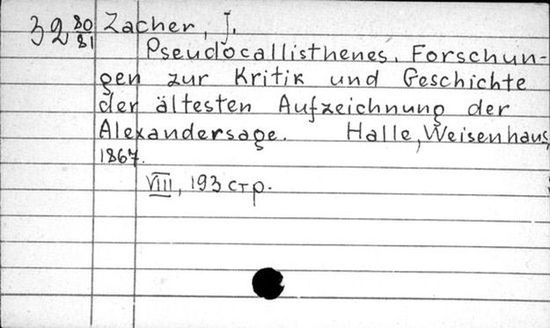 32 80/81 Zacher, J.
Pseudocallisthenes. Forschun-
gen zur Kritik und Geschichte
der ältesten Aufzeichnung der
Alexandersage. Halle, Weisenhaus,
1867.
VIII, 193 стр.